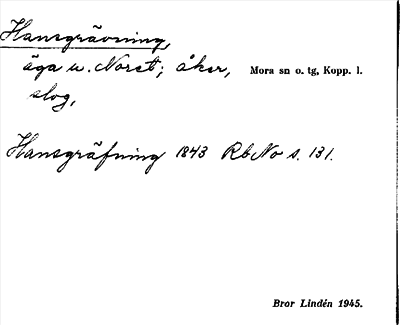 Hansgrävning,
äga u. Noret; åker, Mora sn o. tg, Kopp. l.
slog,
Hansgräfning 1843 RbNo s. 131.
Bror Lindén 1945.